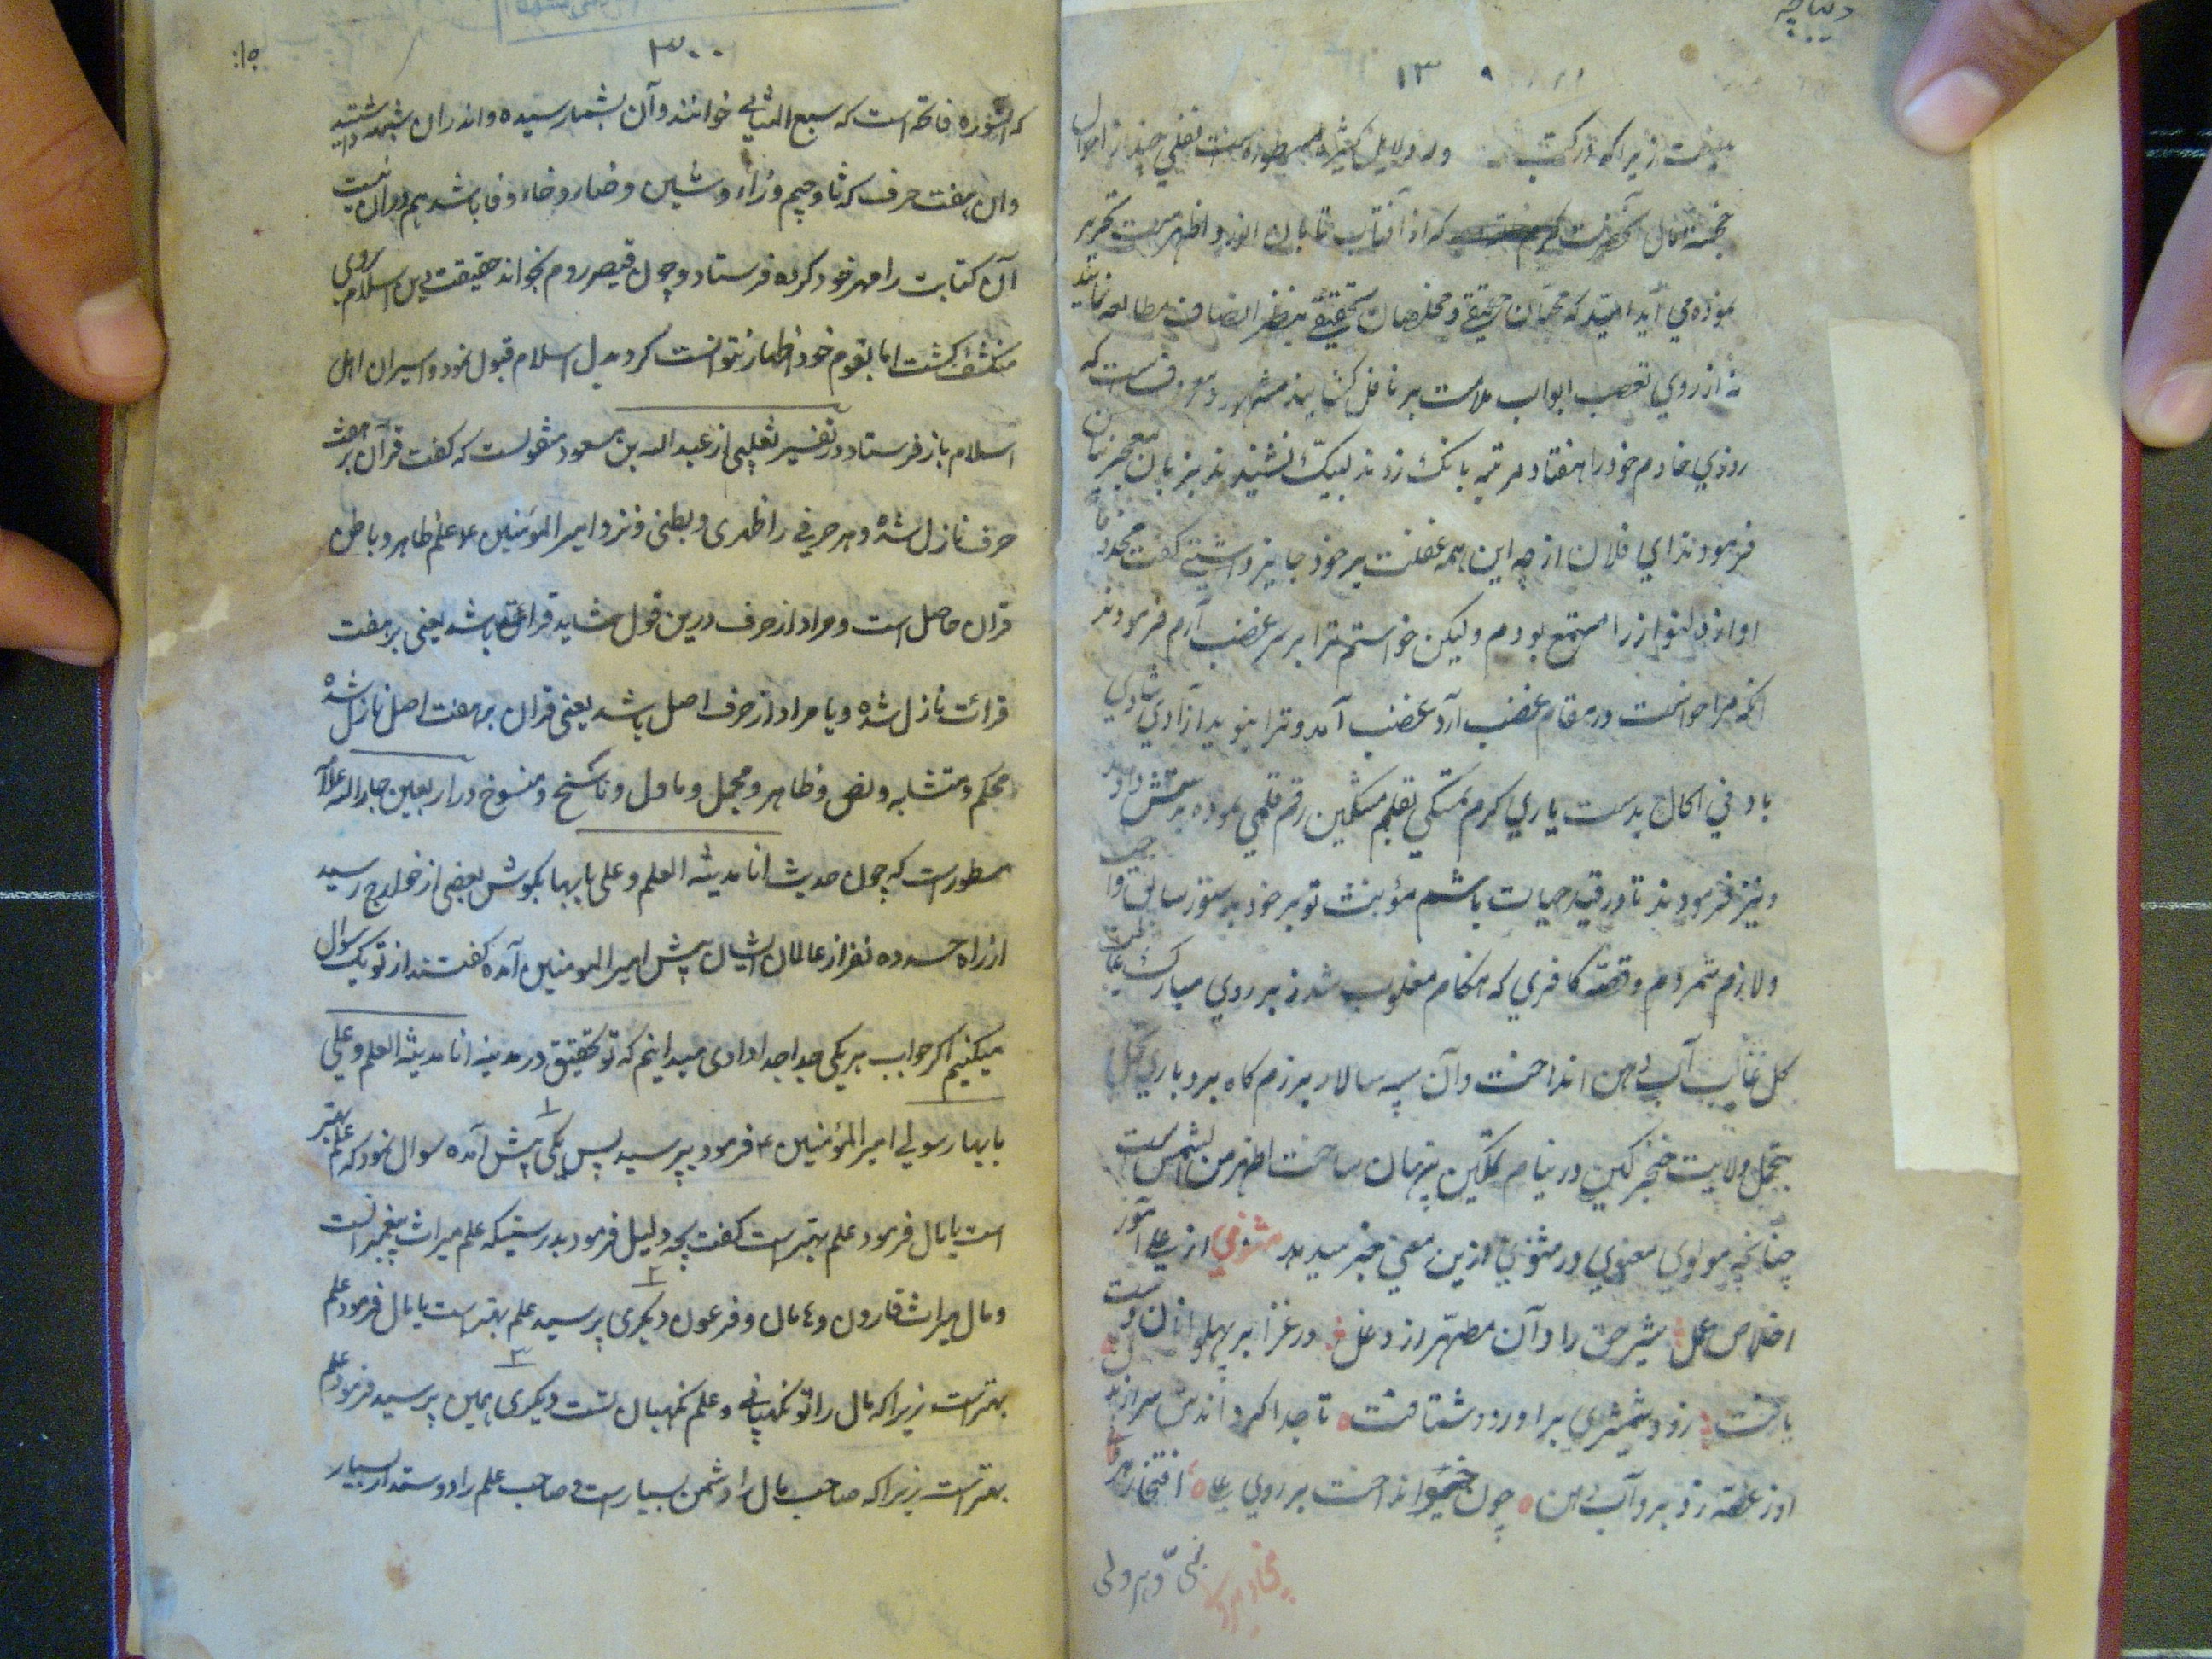 دیباچه
۱۳
زیراکه در کتب در دلایل کثیره مسطوره است نقلی چند از احوال
خجسته مآل آنحضرت که از آفتاب تابان انور و اظهرست تحریر
نموده می آید امید که محبان حقیقی و مخلصان تحقیقی بنظر انصاف مطالعه نمایند
نه از روی تعصب ابواب ملامت بر ناقل کشایند مشهور و معروفست که
روزی خادم خود را هفتاد مرتبه بانک زدند لبیک نشنیدند بزبان معجز بیان
فرمودند ای فلان از چه این همه غفلت بر خود جایز داشتی کفت مخدوما
اواز دلنواز را مستمع بودم ولیکن خواستم ترا بر سر غضب آرم فرمودند
آنکه مرا خواست در مقام غضب آرد بغضب آمد و ترا بنوید ازادی شادی
باد فی الحال بدست یاری کرم متکی بقلم مشکین رقم قلمی نموده بدستش دادند
و نیز فرمودند تا در قید حیات باشم مؤنت تو بر خود بدستور سابق واجب
و لازم شمردم و قصه کافری که هنکام مغلوب شدن بر روی مبارک علی
کل غالب آب دهن انداخت و آن سپه سالار برزم کاه بردباری بکمال
تحمل ولایت خنجر کین در نیام تمکین پنهان ساخت اظهر من الشمس است
چنانچه مولوی معنوی در مثنوی ازین معنی خبر میدهد مثنوی از علی آموز
اخلاص عمل شیر حق را دان مطهر از دغل در غزا بر پهلوانان دست
یافت زود شمشیری براورد و شتافت تا جدا کرداندش سر از بدن
او ز غصه زد برو آب دهن چون خیو انداخت بر روی علی افتخار هر
نبی و هر ولی
۳۰۰
که آنسوره فاتحه است که سبع المثانی خوانند و آن بشمار رسیده و اندران ثبت
وان هفت حرف که ثا و جیم و زاء و شین و ضاد و خاء و فا باشد هم دران نیست
آن کتابت را مهر خود کرده فرستاد و چون قیصر روم بخواند حقیقت دین اسلام بروی
منکشف کشت اما بقوم خود اظهار نتوانست کرد بدل اسلام قبول نمود و اسیران اهل
اسلام باز فرستاد و در تفسیر ثعلبی از عبد الله بن مسعود منقولست که کفت قرآن بر هفت
حرف نازل شده و هر حرفی را ظهری و بطنی و نزد امیر المؤمنین ع علم ظاهر و باطن
قران حاصل است و مراد از حرف درین قول شاید قرائت باشد یعنی بر هفت
قرائت نازل شده و یا مراد از حرف اصل باشد یعنی قران بر هفت اصل نازل شده
محکم و متشابه و نص و ظاهر و مجمل و ماول و ناسخ و منسوخ در اربعین جار الله علامه
مسطور است که چون حدیث انا مدینة العلم و علی بابها بکوش بعضی از خوارج رسید
از راه حسد ده نفر از عالمان ایشان پیش امیر المومنین آمده کفتند از تو یک سوال
میکنیم اکر جواب هر یکی جدا جدا دادی میدانیم که تو بتحقیق در مدینه انا مدینة العلم و علی
بابها رسولی امیر المؤمنین ع فرمود بپرسید پس یکی پیش آمده سوال نمود که علم بهتر
است یا مال فرمود علم بهتر است کفت بچه دلیل فرمود بدرستیکه علم میراث پیغمبرانست
و مال میراث قارون و هامان و فرعون دیکری پرسید علم بهتر است یا مال فرمود علم
بهتر است زیراکه مال را تو نکهبانی و علم نکهبان تست دیکری همین پرسید فرمود علم
بهتر است زیراکه صاحب مال را دشمن بسیار است و صاحب علم را دوستدار بسیار